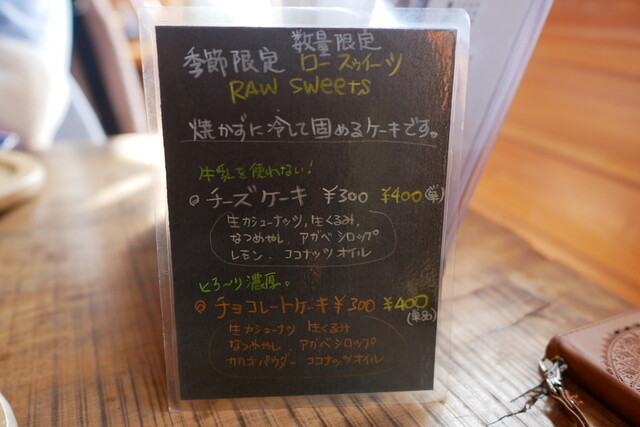 数量限定
季節限定 ロースゥイーツ
RAW Sweets
焼かずに冷して固めるケーキです。
牛乳を使わない!
チーズケーキ ¥300 ¥400(単)
生カシューナッツ, 生くるみ,
なつめやし. アガベシロップ
レモン. ココナッツオイル
とろ〜り濃厚。
チョコレートケーキ ¥300 ¥400
(単品)
生カシューナッツ 生くるみ
なつめやし. アガベシロップ
カカオパウダー ココナッツオイル